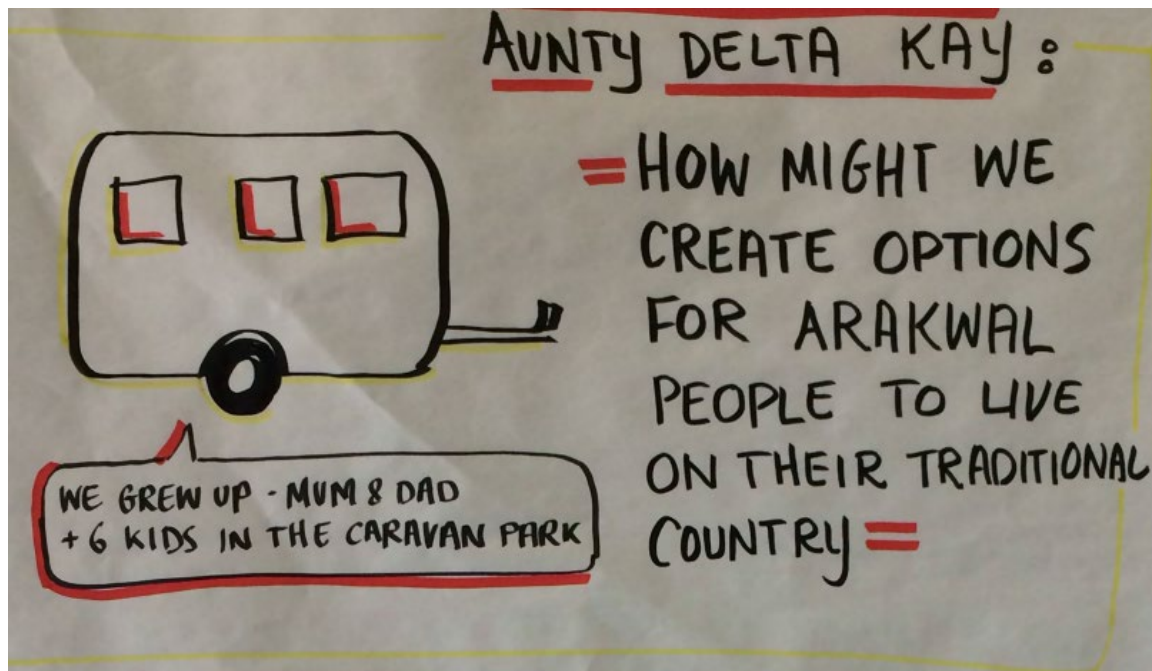 AUNTY DELTA KAY:
=HOW MIGHT WE
CREATE OPTIONS
FOR ARAKWAL
PEOPLE TO LIVE
ON THEIR TRADITIONAL
COUNTRY=
WE GREW UP - MUM & DAD
+ 6 KIDS IN THE CARAVAN PARK